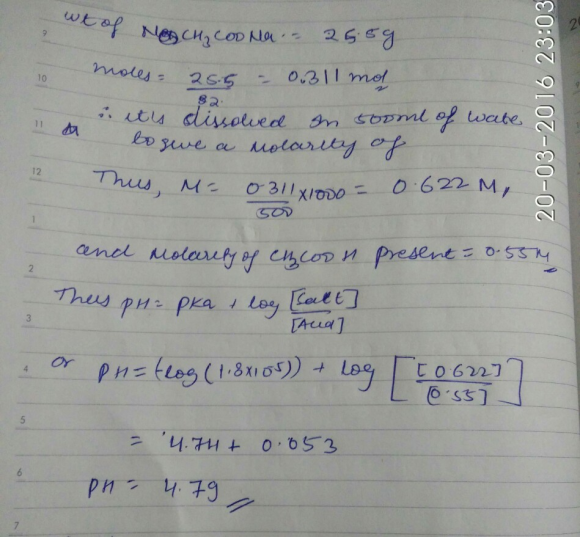 wt of CH3COONa = 25.5g
moles = 25.5/82 = 0.311 mol
∴ it is dissolved in 500ml of water
to give a molarity of
Thus, M = 0.311/500 x1000 = 0.622 M,
and molarity of CH3COOH present = 0.55M
Thus pH = pKa + log [Salt]/[Acid]
or pH = (-log(1.8x10-5)) + log [[0.622]/[0.55]]
= 4.74 + 0.053
pH = 4.79
20-03-2016 23:03
9
10
11
12
1
2
3
4
5
6
7